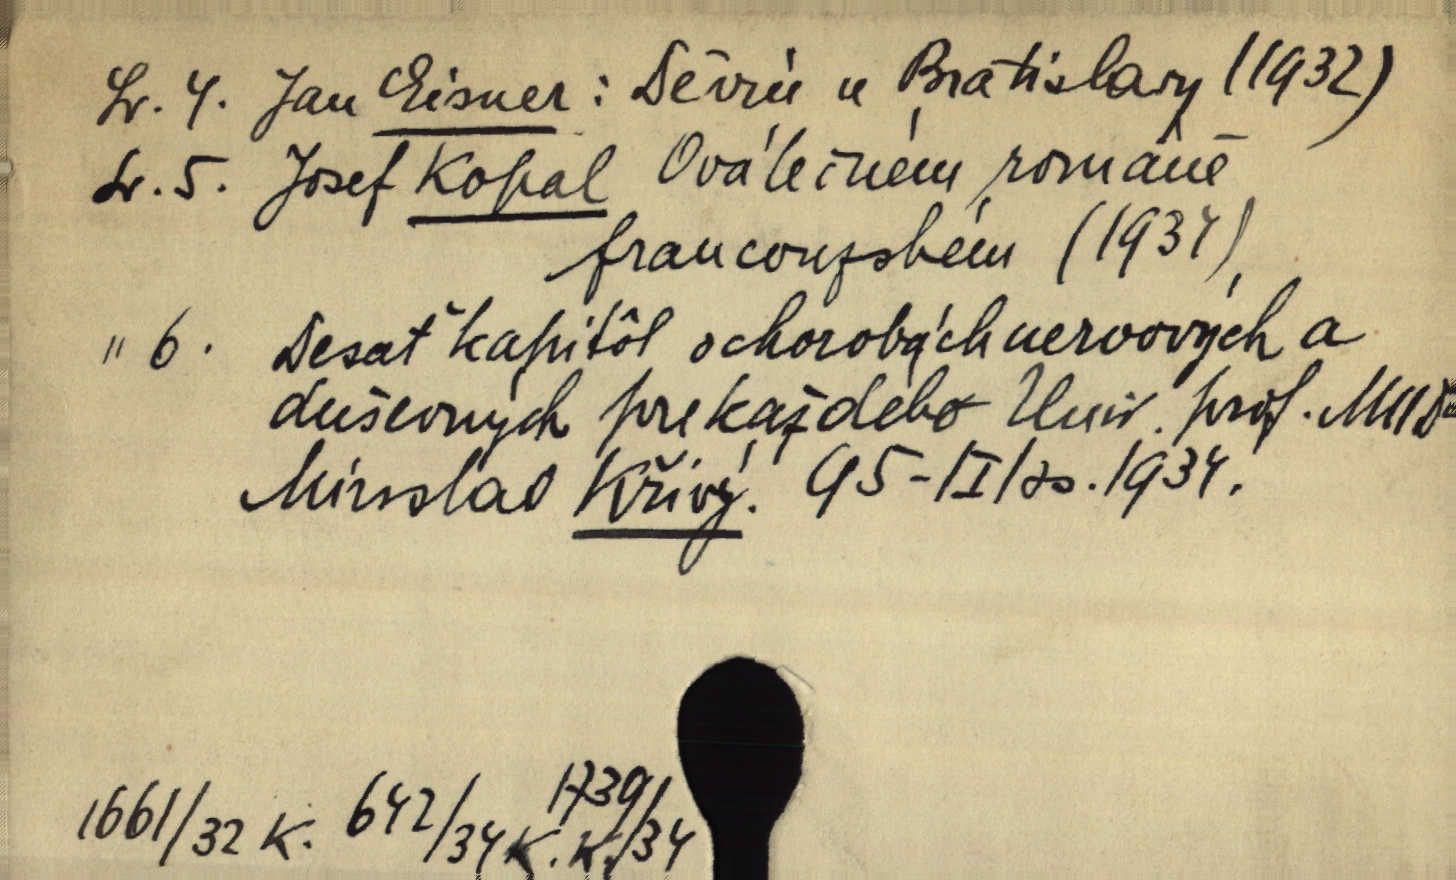 Sv. 4. Jan Eisner: Děvín u Bratislavy (1932)
Sv. 5. Josef Kopal O válečném románě
francouzském (1934)
" 6. Desať kapitôl o chorobách nervových a
duševných pre každého Univ. prof. MUDr
Miroslav Křivý. 95-/I/ss. 1934.
1661/32 K. 642/34 K. K. 1739/34